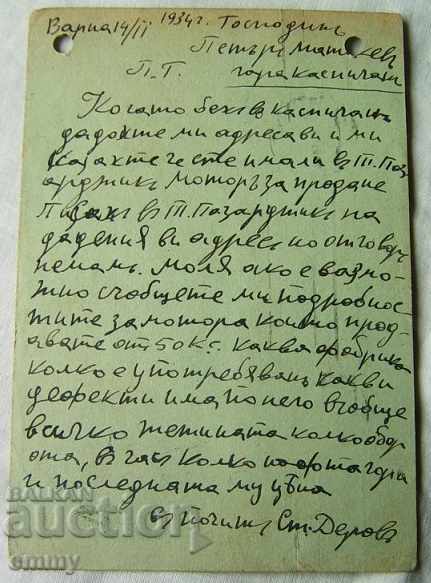 Варна 14/II 1934 г. Господинъ
Петъръ Матеев
П.Т. гара Каспичанъ
Когато бехъ в Каспичанъ
дадохте ми адреса ви и ми
казахте че сте имали въ Т. Паз
арджикъ моторъ за продане
Писахъ въ Т. Пазарджикъ на
дадения ви адресъ но отговоръ
немамъ. Моля ако е възмо-
жно съобщете ми подробнос-
тите за мотора които прод-
авате от 50 к.с. каква фабрика
колко е употребяванъ какви
дефекти има по него въобще
всичко тегнината колко обор
ота, в час колко нафта гори
и последната му цена
въ почитъ Ст. Деровъ
BALKAN
auction
emmy